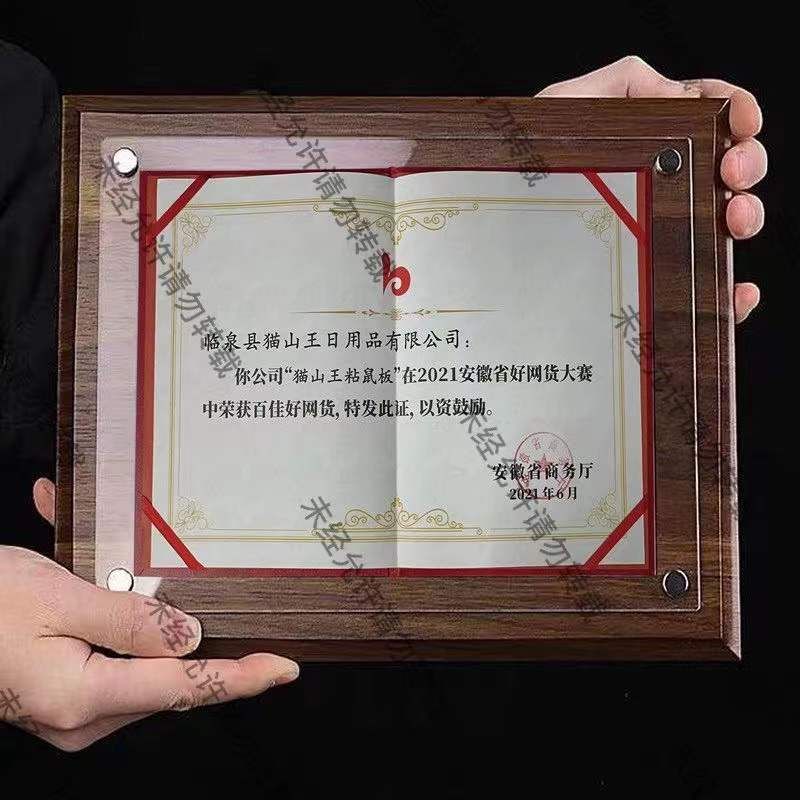 临泉县猫山王日用品有限公司：
你公司“猫山王粘鼠板”在2021安徽省好网货大赛
中荣获百佳好网货，特发此证，以资鼓励。
安徽省商务厅
2021年6月
未经允许请勿转载
未经允许请勿转载
未经允许请勿转载
未经允许请勿转载
未经允许请勿转载
未经允许请勿转载
未经允许请勿转载